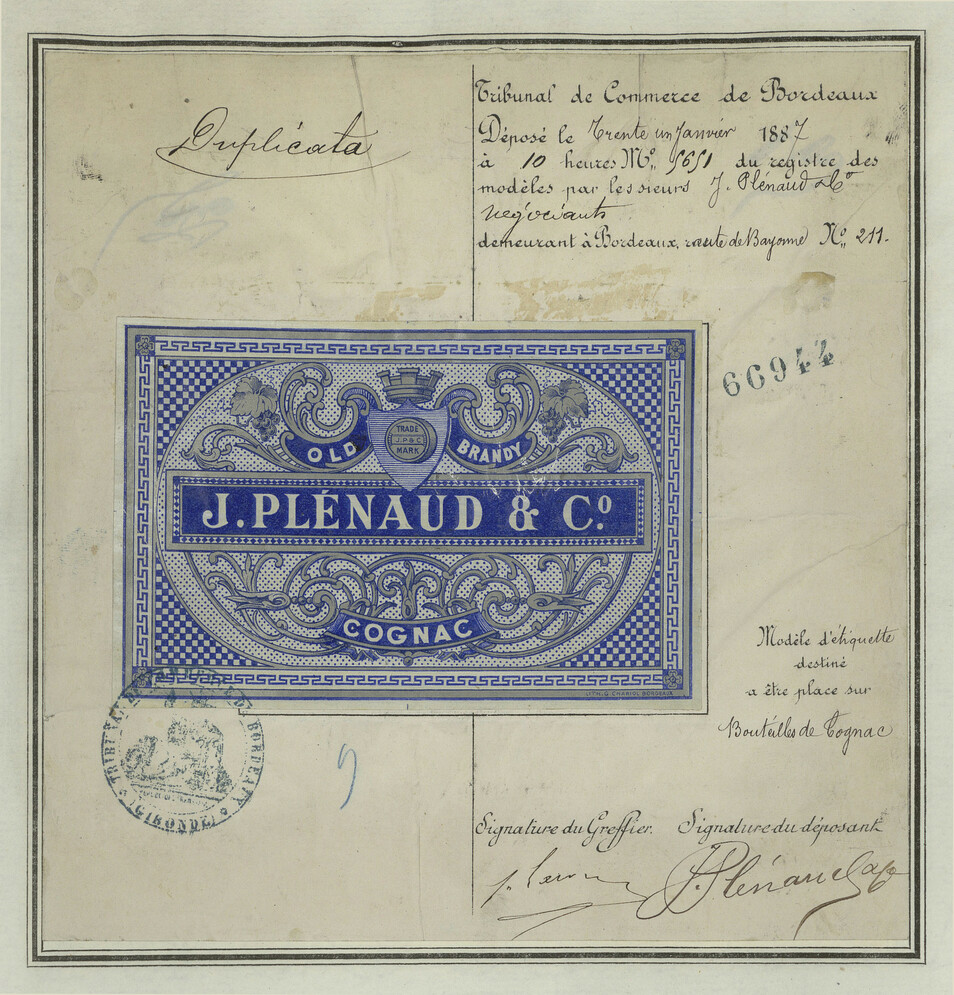 Duplicata
Tribunal de Commerce de Bordeaux
Déposé le Trente un Janvier 1887
à 10 heures M. No. 5651 du registre des
modèles par les sieurs J. Plénaud & Co
négociants
demeurant à Bordeaux, route de Bayonne No. 211.
66944
OLD BRANDY
TRADE
J.P&C
MARK
J. PLÉNAUD & Co.
COGNAC
LITH. G. CHARIOL BORDEAUX
Modèle d'étiquette
destiné
a être place sur
Bouteilles de Cognac
TRIBUNAL DE COMMERCE DE BORDEAUX
(GIRONDE)
9
Signature du Greffier. Signature du déposant
J. Plénaud & Co